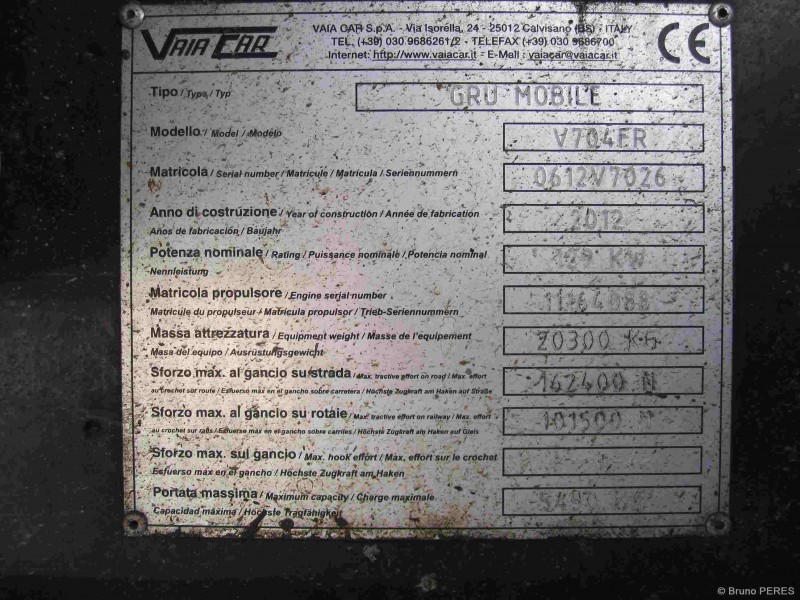 VAIA CAR
VAIA CAR S.p.A. - Via Isorella, 24 - 25012 Calvisano (BS) - ITALY
TEL. (+39) 030 9686261/2 - TELEFAX (+39) 030 9686700
Internet: http://www.vaiacar.it - E-Mail: vaiacar@vaiacar.it
CE
Tipo / Type / Typ GRU MOBILE
Modello / Model / Modelo V704FR
Matricola / Serial number / Matricule / Matricula / Seriennummern 0612V7026
Anno di costruzione / Year of construction / Année de fabrication 2012
Años de fabricación / Baujahr
Potenza nominale / Rating / Puissance nominale / Potencia nominal KW
Nennleistung
Matricola propulsore / Engine serial number
Matricule du propulseur / Matricula propulsor / Trieb-Seriennummern
Massa attrezzatura / Equipment weight / Masse de l'équipement 20300 KG
Masa del equipo / Ausrüstungsgewicht
Sforzo max. al gancio su strada / Max. tractive effort on road / Max. effort 162400 N
au crochet sur route / Esfuerso máx en el gancho sobre carretera / Höchste Zugkraft am Haken auf Straße
Sforzo max. al gancio su rotaie / Max. tractive effort on railway / Max. effort 101500 N
au crochet sur rails / Esfuerso máx en el gancho sobre carriles / Höchste Zugkraft am Haken auf Gleis
Sforzo max. sul gancio / Max. hook effort / Max. effort sur le crochet
Esfuerso máx en el gancho / Höchste Zugkraft am Haken
Portata massima / Maximum capacity / Charge maximale
Capacidad máxima / Höchste Tragfähigkeit
© Bruno PERES